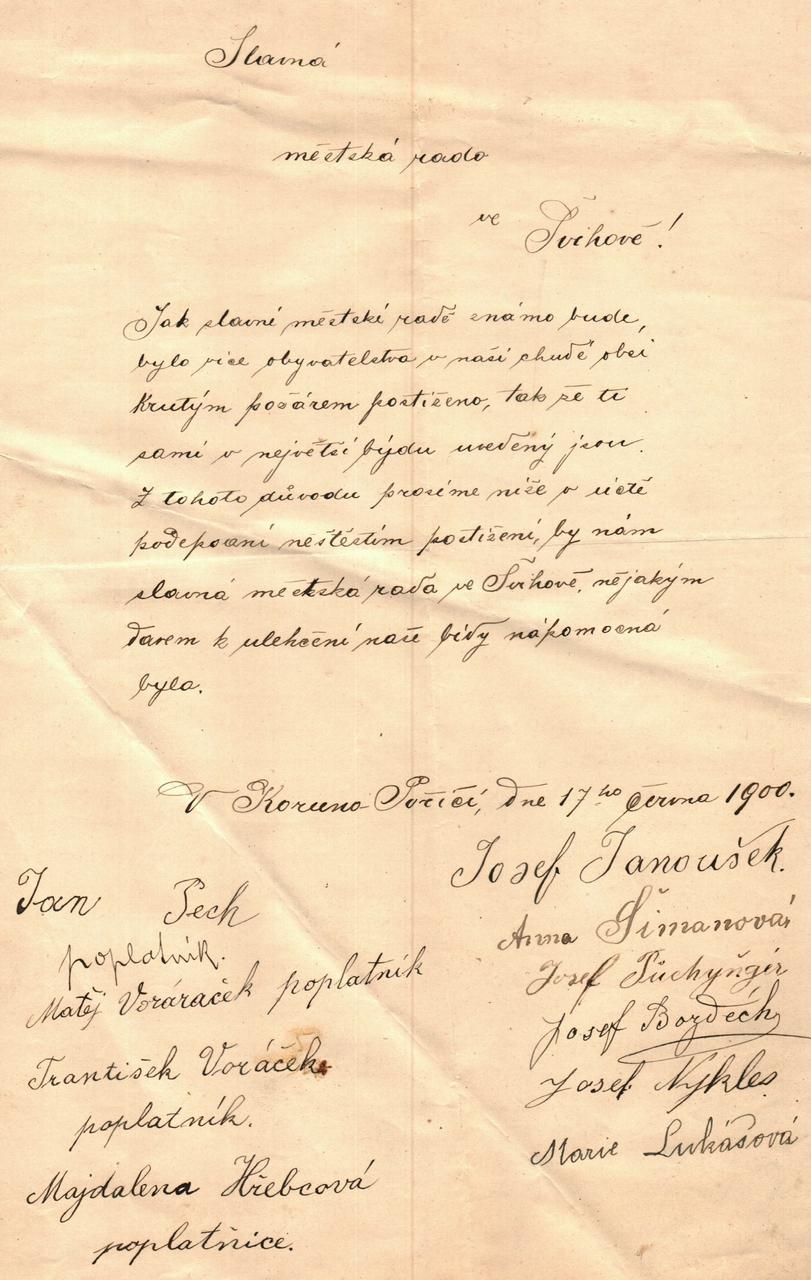 Slavná
městská rado
ve Švihově!
Jak slavné městské radě známo bude,
bylo více obyvatelstva v naší chudé obci
krutým požárem postiženo, tak že ti
samí v největší býdu uvedený jsou.
Z tohoto důvodu prosíme níže v úctě
podepsaní neštěstím postižení, by nám
slavná městská rada ve Švihově, nějakým
darem k ulehčení naší bídy nápomocná
byla.
V Koruno Poříčí, dne 17ho června 1900.
Josef Janoušek.
Jan Pech
poplatník.
Anna Šimanová
Josef Puchyňgir
Matěj Voráraček poplatník
Josef Bozděch
František Voráček
poplatník.
Josef Nykles
Marie Lukášová
Majdalena Hřebcová
poplatňice.